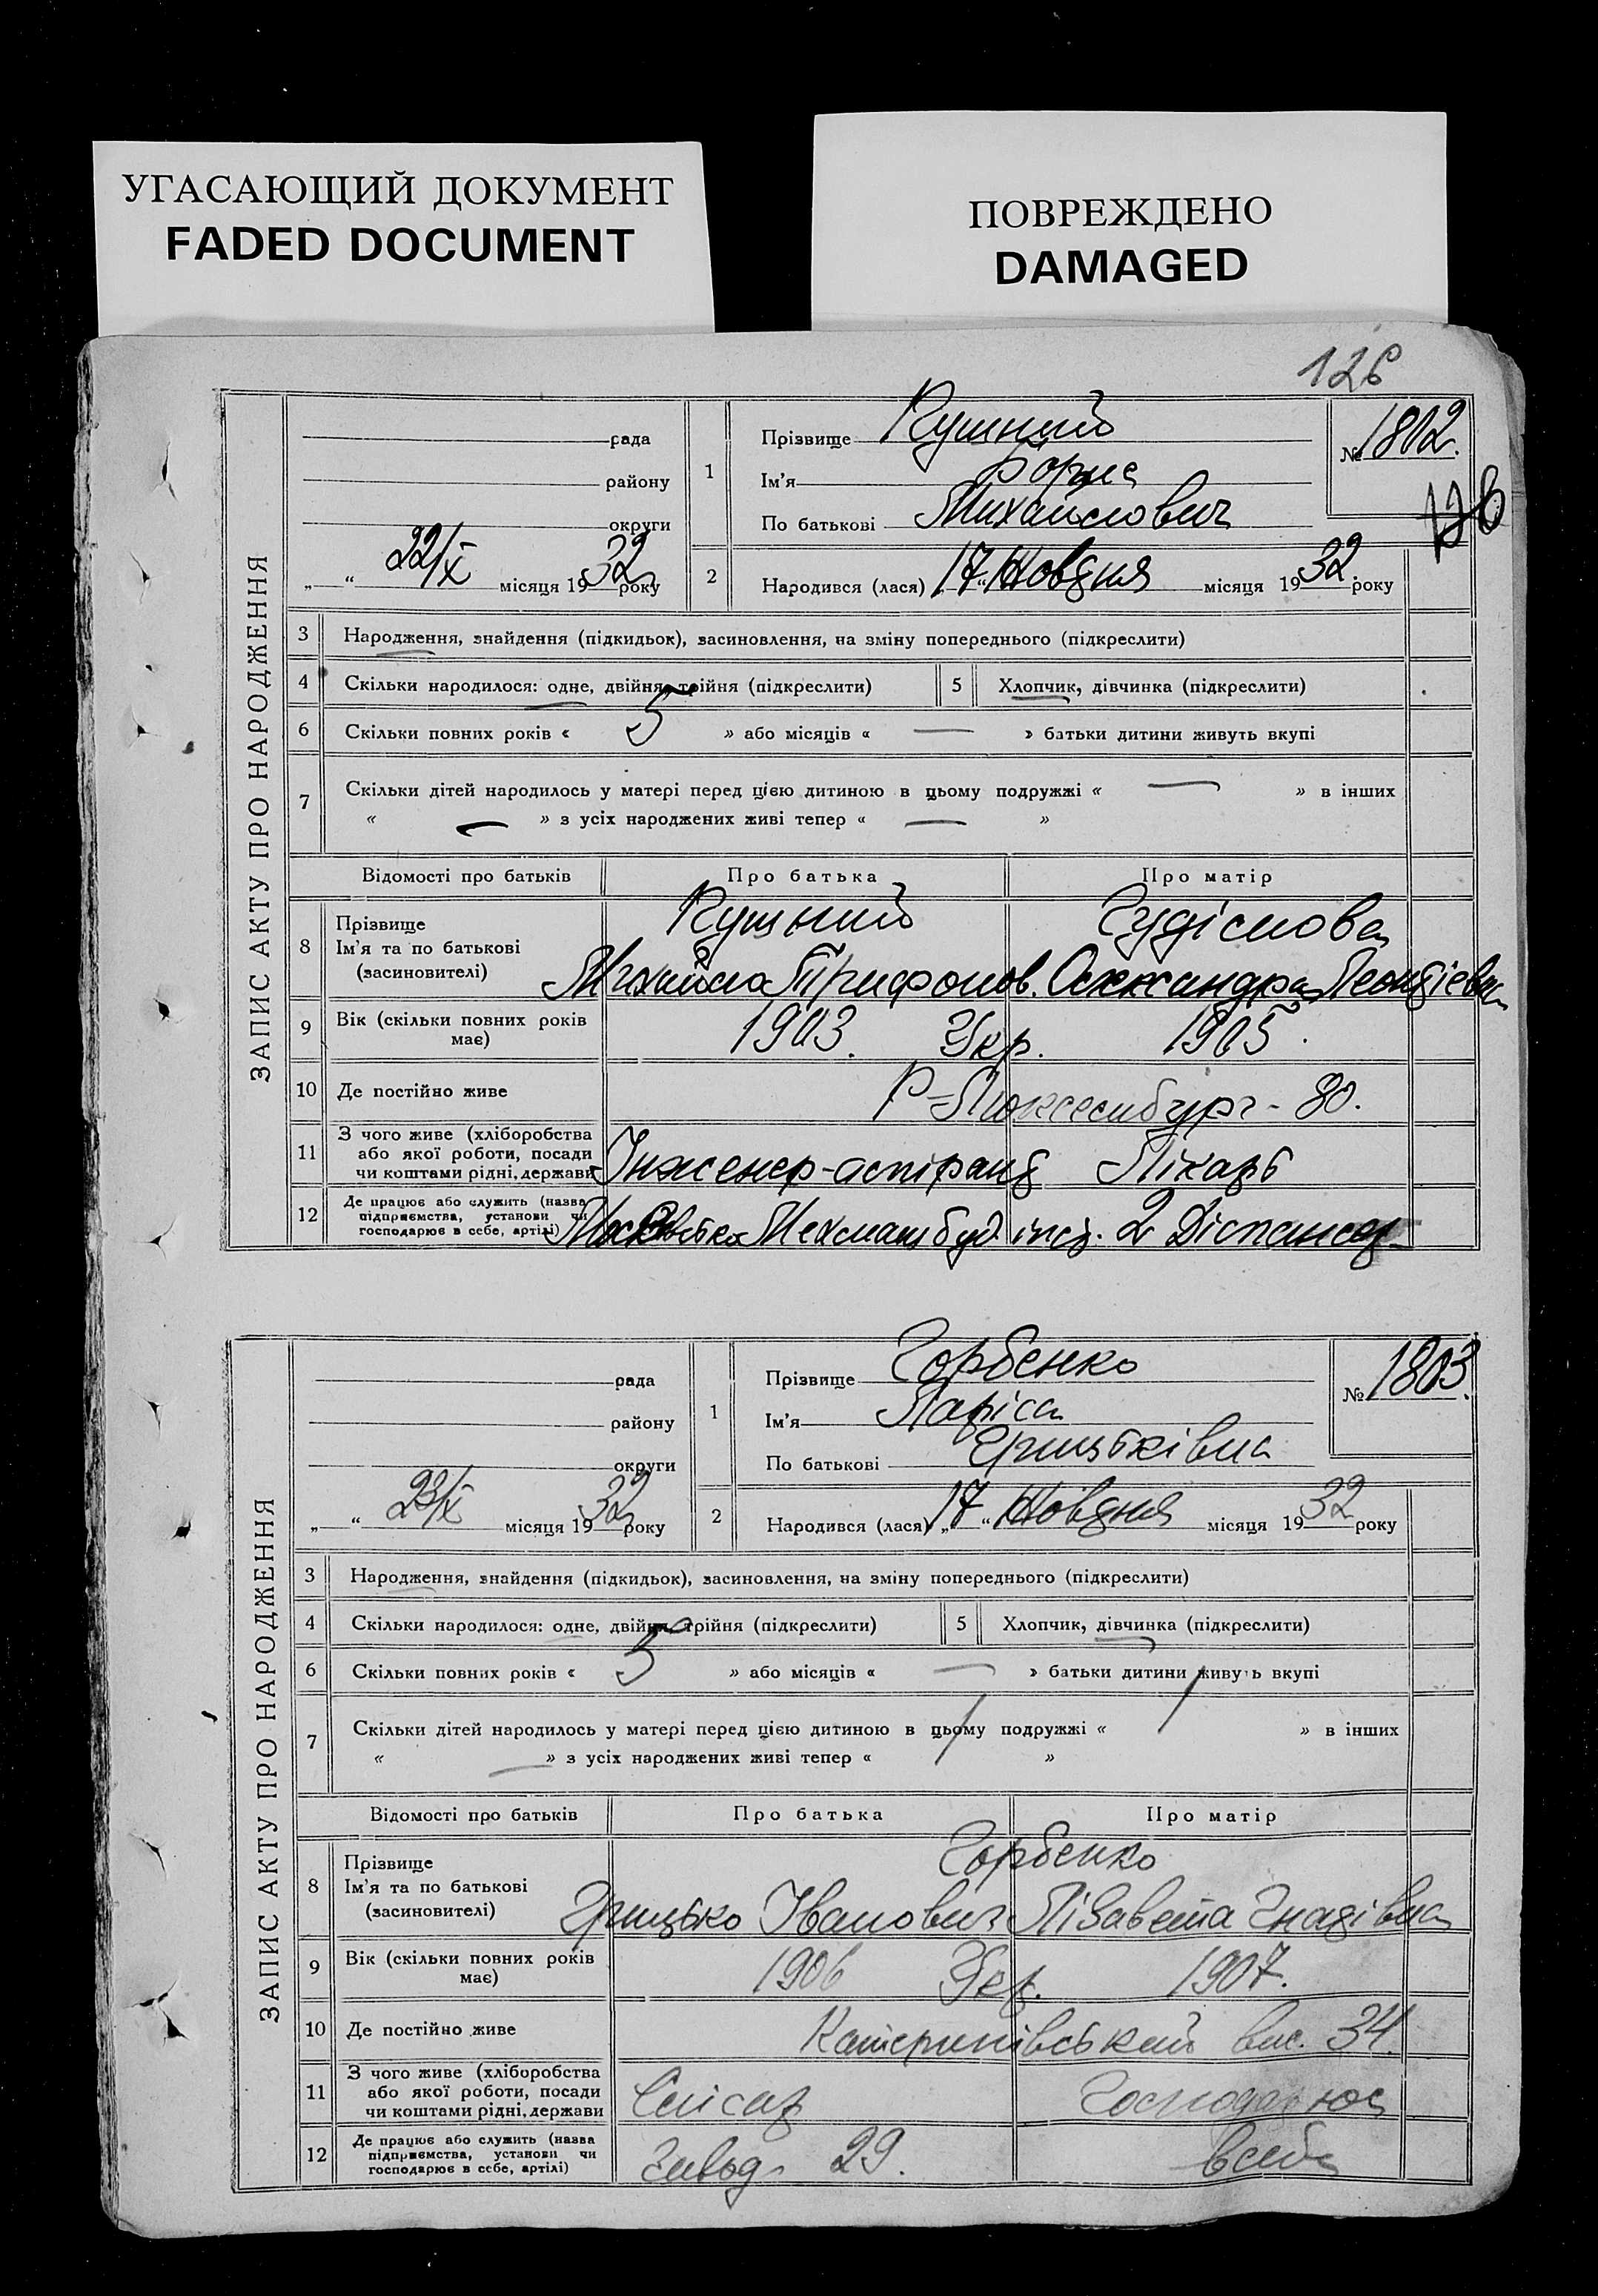 УГАСАЮЩИЙ ДОКУМЕНТ
FADED DOCUMENT
ПОВРЕЖДЕНО
DAMAGED
126
ЗАПИС АКТУ ПРО НАРОДЖЕННЯ
рада
району
округи
„ “ 22/X місяця 1932 року
1
Прізвище Кушний
Ім'я Борис
По батькові Михайлович
№ 1802.
126
2
Народився (лася) „17“ Жовдня місяця 1932 року
3 Народження, знайдення (підкидьок), засиновлення, на зміну попереднього (підкреслити)
4 Скільки народилося: одне, двійня, трійня (підкреслити) 5 Хлопчик, дівчинка (підкреслити)
6 Скільки повних років « 5 » або місяців « — » батьки дитини живуть вкупі
7 Скільки дітей народилось у матері перед цією дитиною в цьому подружжі « — » в інших
« — » з усіх народжених живі тепер « — »
Відомості про батьків Про батька Про матір
8 Прізвище
Ім'я та по батькові
(засиновителі)
Кушний
Михайло Трифонов.
Олександра Леонтієвна
9 Вік (скільки повних років має) 1903. Укр. 1905.
10 Де постійно живе Р-Люксембург - 80.
11 З чого живе (хліборобства або якої роботи, посади чи коштами рідні, держави Інженер-аспірант Лікарь
12 Де працює або служить (назва підприємства, установи чи господарює в себе, артілі) Мехмашбуд. інст. 2 Діспансер
ЗАПИС АКТУ ПРО НАРОДЖЕННЯ
рада
району
округи
„ “ 23/X місяця 1932 року
1
Прізвище Горбенко
Ім'я Ларіса
По батькові Грицьківна
№ 1803.
2
Народився (лася) „17“ Жовдня місяця 1932 року
3 Народження, знайдення (підкидьок), засиновлення, на зміну попереднього (підкреслити)
4 Скільки народилося: одне, двійня, трійня (підкреслити) 5 Хлопчик, дівчинка (підкреслити)
6 Скільки повних років « 5 » або місяців « — » батьки дитини живуть вкупі
7 Скільки дітей народилось у матері перед цією дитиною в цьому подружжі « » в інших
« — » з усіх народжених живі тепер « »
Відомості про батьків Про батька Про матір
8 Прізвище
Ім'я та по батькові
(засиновителі)
Горбенко
Грицько Іванович Лізавета Гнатівна
9 Вік (скільки повних років має) 1906 Укр. 1907.
10 Де постійно живе Катеринівський вис. 34.
11 З чого живе (хліборобства або якої роботи, посади чи коштами рідні, держави Слісар Господарює
12 Де працює або служить (назва підприємства, установи чи господарює в себе, артілі) Завод 29. всебе